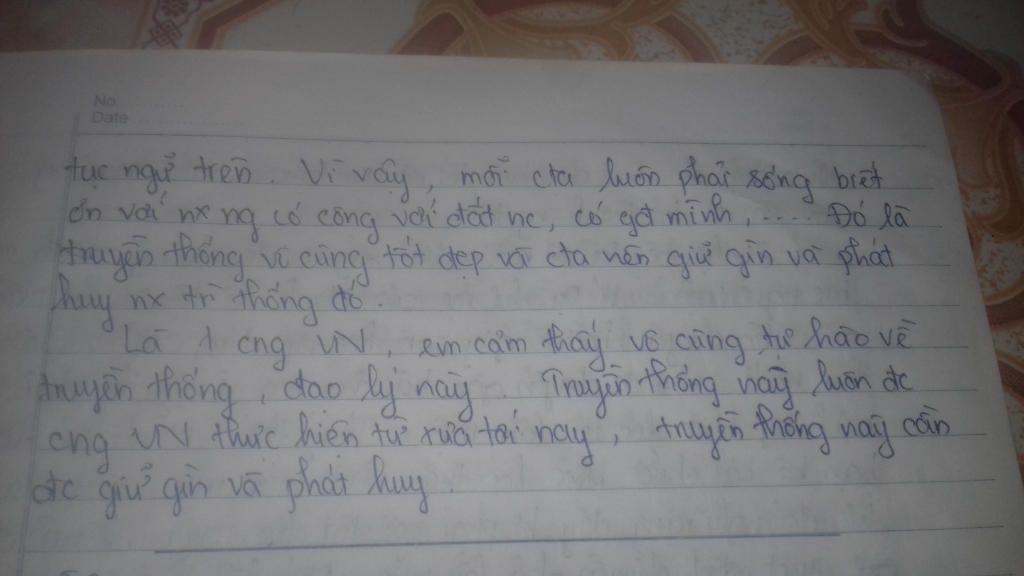 No.
Date
tục ngữ trên. Vì vậy, mỗi cta luôn phải sống biết
ơn với nx ng có công với đất nc, có gđ mình, .... Đó là
truyền thống vô cùng tốt đẹp và cta nên giữ gìn và phát
huy nx tr` thống đó.
Là 1 cng VN, em cảm thấy vô cùng tự hào về
truyền thống, đạo lý này. Truyền thống này luôn đc
cng VN thực hiện từ xưa tới nay, truyền thống này cần
đc giữ gìn và phát huy.